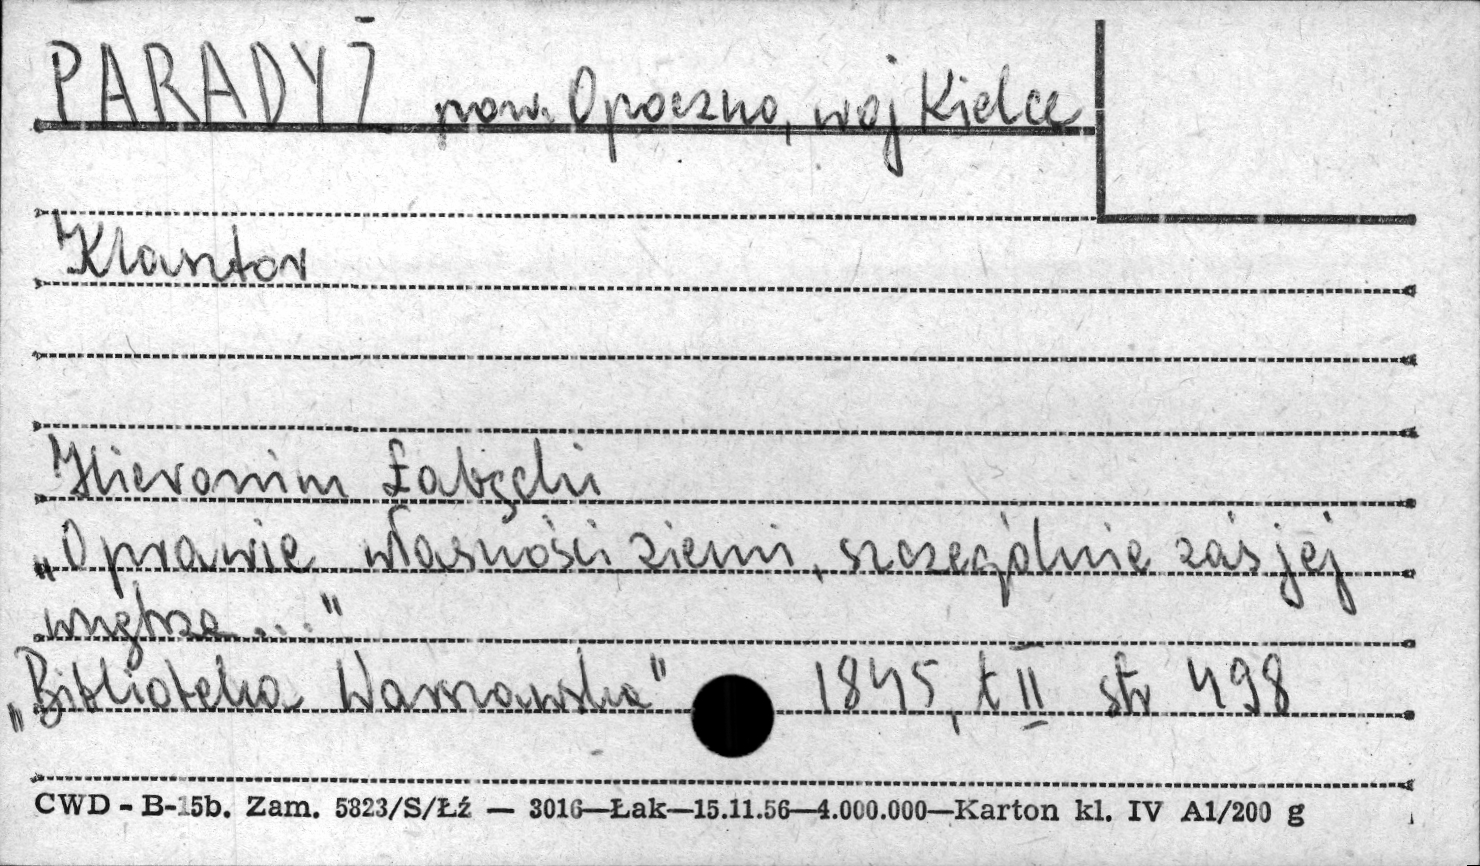 PARADYŻ pow. Opoczno, woj Kielce
Klasztor
Hieronim Łabęcki
„O prawie własności ziemi, szczególnie zaś jej
wnętrza...."
„Biblioteka Warszawska" 1845, t II str 498
CWD - B-15b. Zam. 5823/S/Łź — 3016—Łak—15.11.56—4.000.000—Karton kl. IV A1/200 g